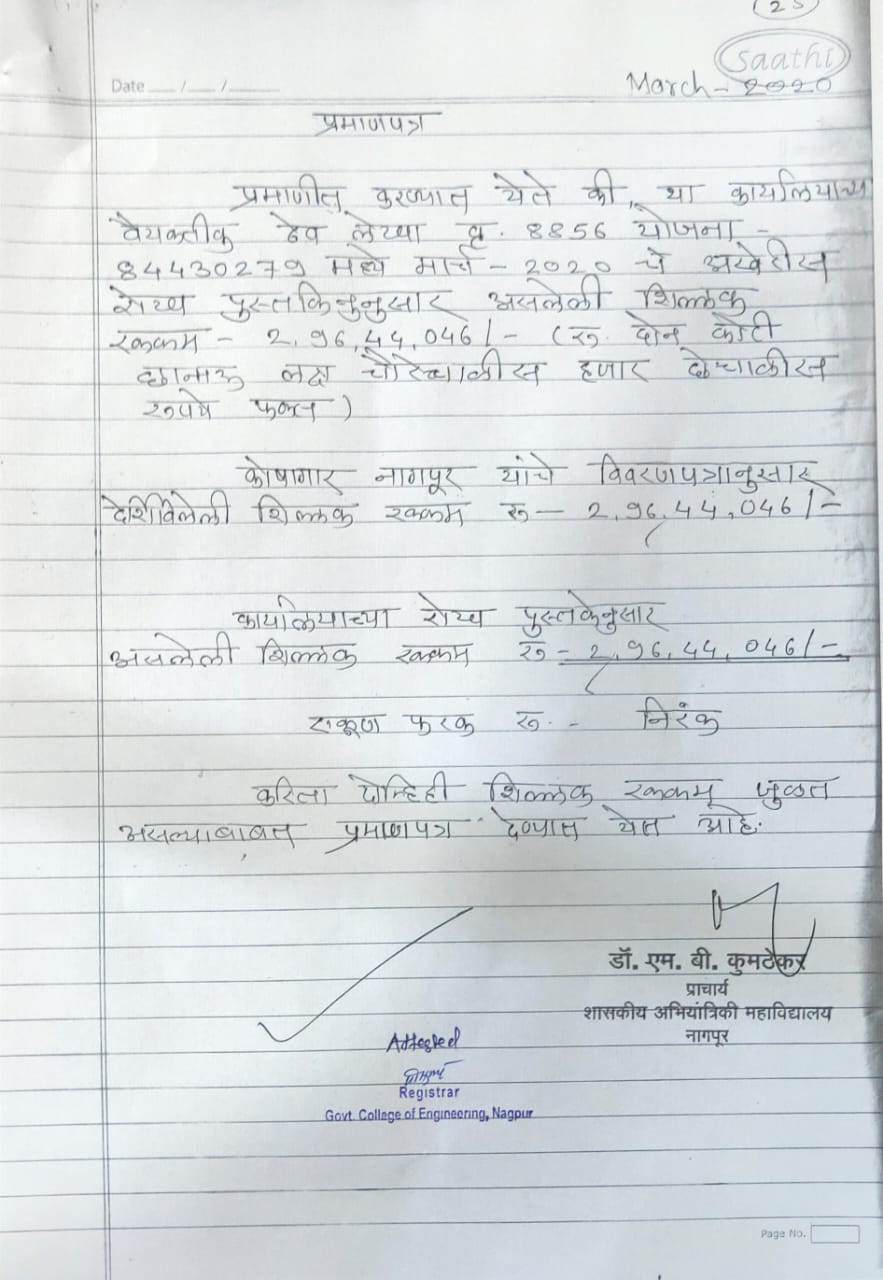 (25)
Saathi
Date ___ / ___ / ______
March - 2020
प्रमाणपत्र
प्रमाणीत करण्यात येते की, या कार्यालयाच्या
वैयक्तीक ठेव लेख्या क्र. 8856 योजना -
84430279 मध्ये मार्च - 2020 चे अखेरीस
रोख पुस्तकिनुनुसार असलेली शिल्लक
रक्कम - 2,96,44,046/- (रु. दोन कोटी
शहानाऊ लक्ष चौरेचाळीस हजार शेचाळीस
रूपये फक्त)
कोषागार नागपूर यांचे विवरणपत्रानुसार
दर्शविलेली शिल्लक रक्कम रु - 2,96,44,046/-
कार्यालयाच्या रोख पुस्तकेनुसार
असलेली शिल्लक रक्कम रु - 2,96,44,046/-
एकूण फरक रु. - निरंक
करिता दोन्ही शिल्लक रक्कम जुळत
असल्याबाबत प्रमाणपत्र देण्यात येत आहे.
डॉ. एम. बी. कुमठेकर
प्राचार्य
शासकीय अभियांत्रिकी महाविद्यालय
नागपूर
Attested
Registrar
Govt. College of Engineering, Nagpur
Page No.